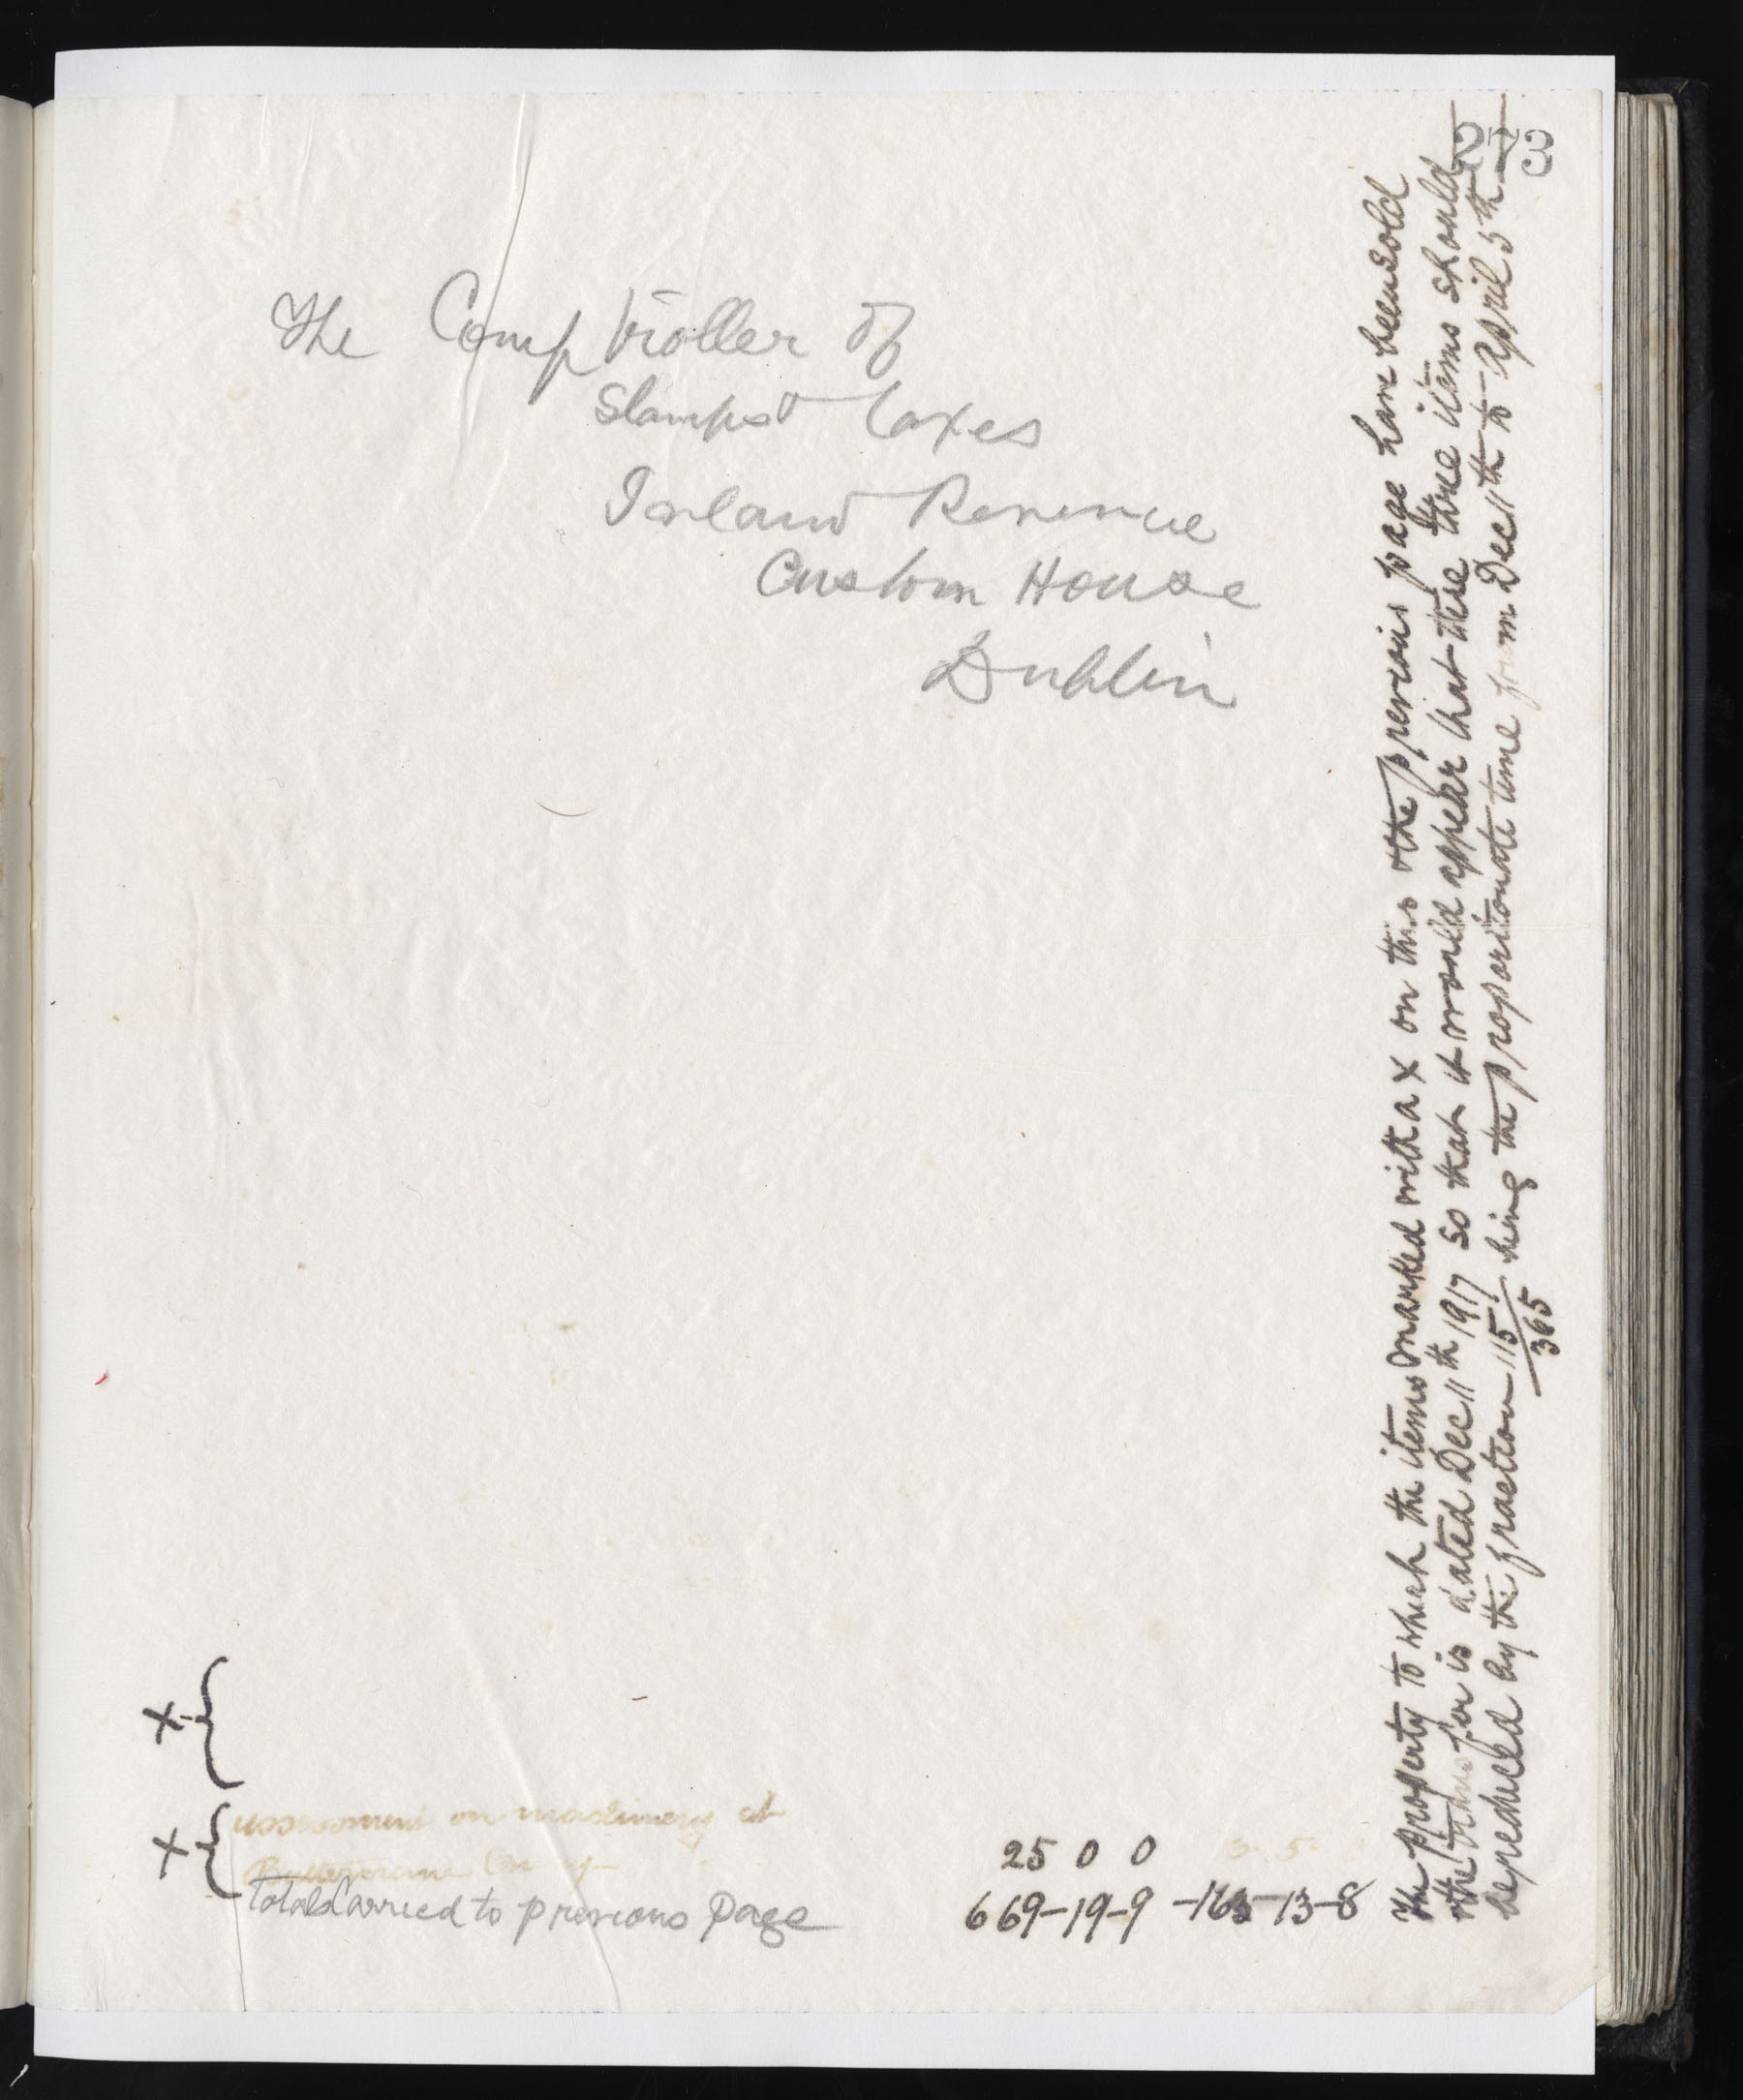 The Comptroller of
Stamps & Taxes
Inland Revenue
Custom House
Dublin
X
X
assessment on machinery at
Buttermere
25 0 0 3 5
Totals Carried to previous page 669-19-9 -163-13-8
The property to which the items marked with a X on this & the previous page have been sold
& the transfer is dated Dec 11th 1917 so that it would appear that these three items should
be reduced by the fraction 115/365 being the proportionate time from Dec 11th to April 5th
273